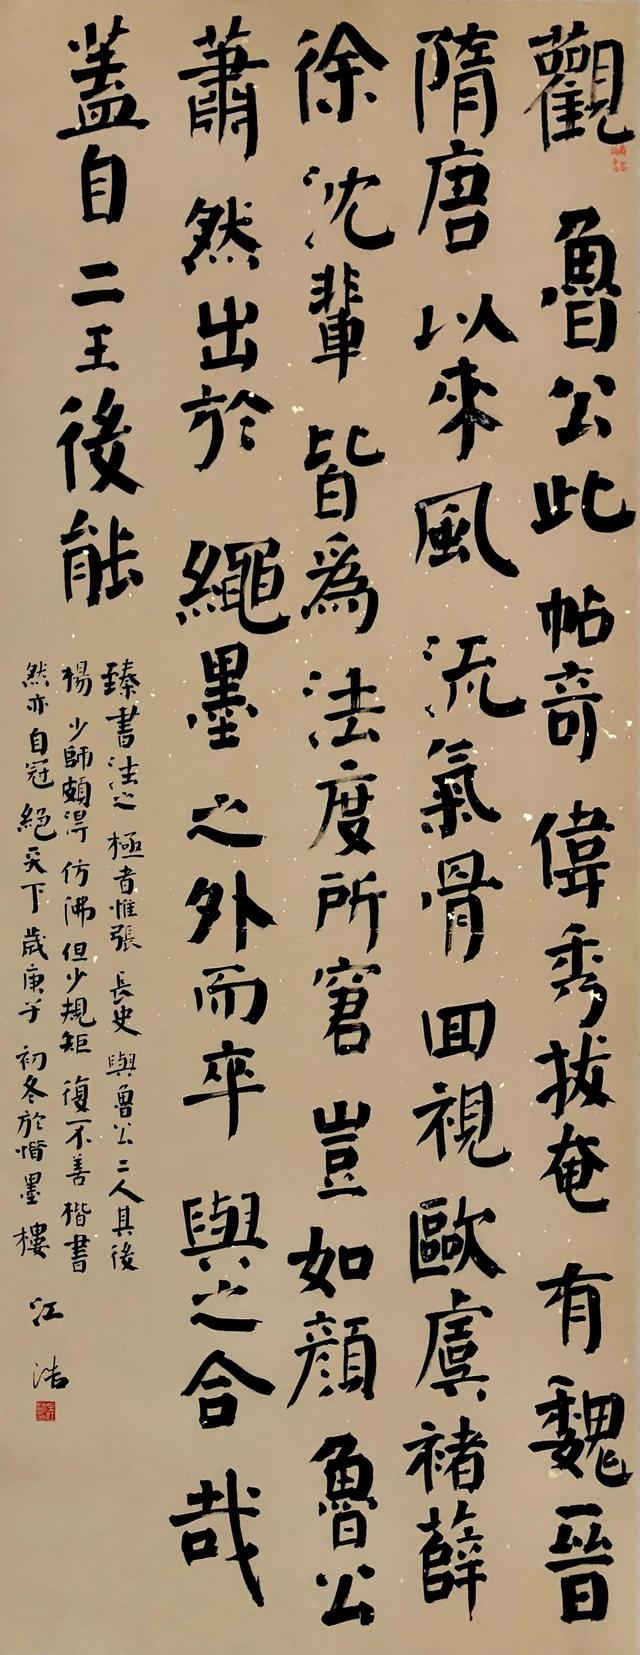 觀魯公此帖奇偉秀拔奄有魏晉
隋唐以來風流氣骨回視歐虞褚薛
徐沈輩皆為法度所窘豈如顏魯公
蕭然出於繩墨之外而卒與之合哉
蓋自二王後能
臻書法之極者惟張長史與魯公二人其後
楊少師頗得仿佛但少規矩復不善楷書
然亦自冠絕天下歲庚子初冬於惜墨樓
江浩